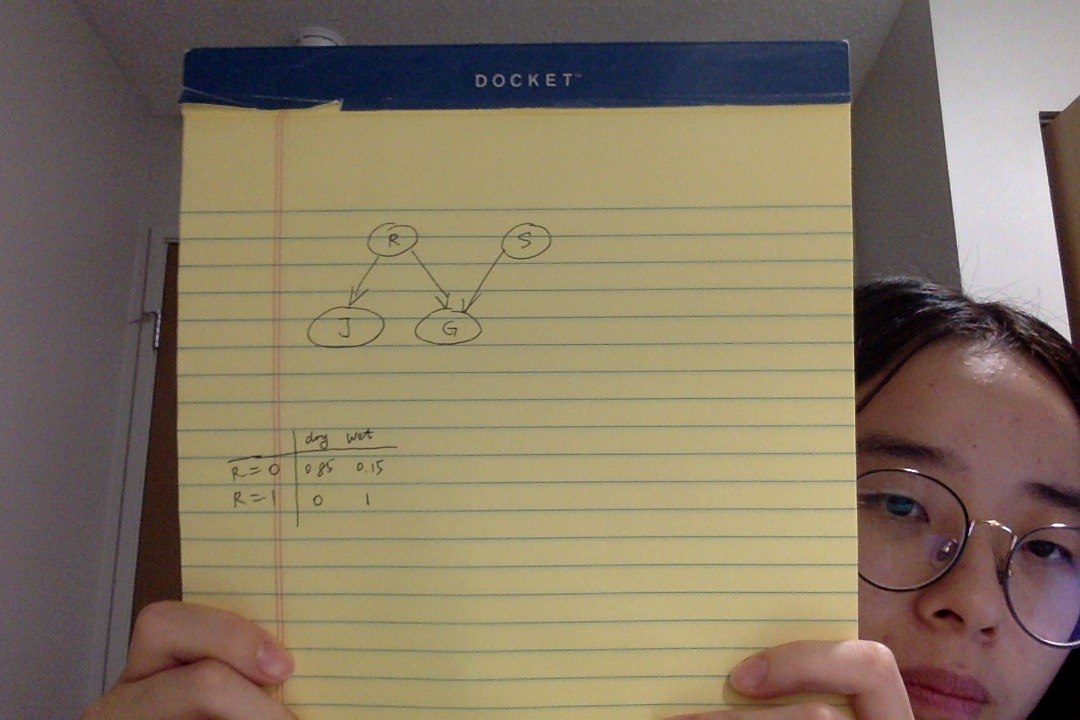 DOCKET™
R S
J G
dry wet
R=0 0.85 0.15
R=1 0 1